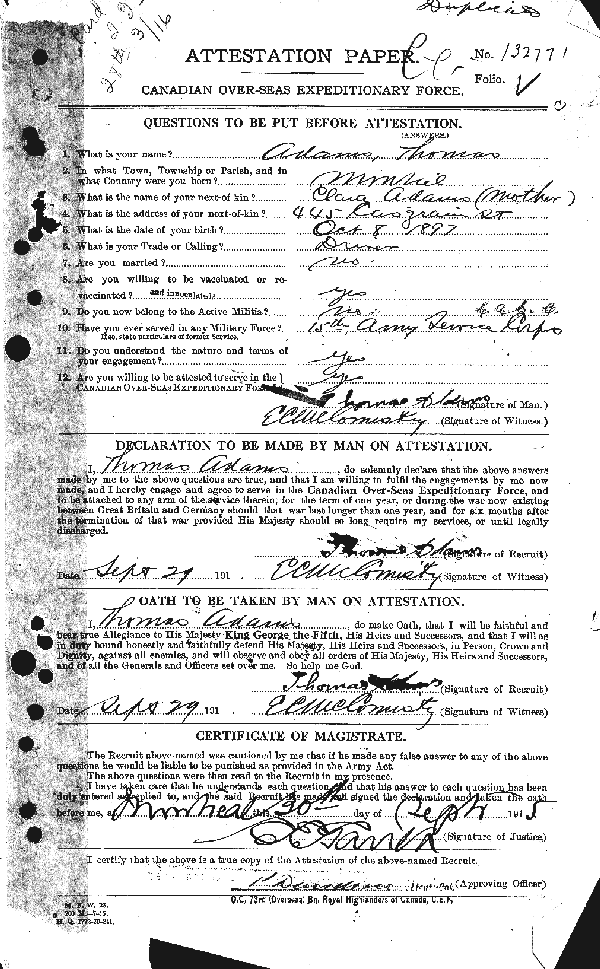 Duplicate
28th 3/16
ATTESTATION PAPER.
No. 132771
Folio.
CANADIAN OVER-SEAS EXPEDITIONARY FORCE.
QUESTIONS TO BE PUT BEFORE ATTESTATION.
(ANSWERS)
1. What is your name? Adams, Thomas
2. In what Town, Township or Parish, and in
what Country were you born? Montreal
3. What is the name of your next-of-kin? Clara Adams (Mother)
4. What is the address of your next-of-kin? 445 Casgrain St
5. What is the date of your birth? Oct 8 1897
6. What is your Trade or Calling? Driver
7. Are you married? no
8. Are you willing to be vaccinated or re-
vaccinated? and inoculated? yes
9. Do you now belong to the Active Militia? no
10. Have you ever served in any Military Force? 15th Army Service Corps
If so, state particulars of former Service.
11. Do you understand the nature and terms of
your engagement? yes
12. Are you willing to be attested to serve in the
CANADIAN OVER-SEAS EXPEDITIONARY FORCE? yes
Thomas Adams (Signature of Man.)
(Signature of Witness)
DECLARATION TO BE MADE BY MAN ON ATTESTATION.
I, Thomas Adams, do solemnly declare that the above answers
made by me to the above questions are true, and that I am willing to fulfil the engagements by me now
made, and I hereby engage and agree to serve in the Canadian Over-Seas Expeditionary Force, and
to be attached to any arm of the service therein, for the term of one year, or during the war now existing
between Great Britain and Germany should that war last longer than one year, and for six months after
the termination of that war provided His Majesty should so long require my services, or until legally
discharged.
Thomas Adams (Signature of Recruit)
Date Sept 29 191 (Signature of Witness)
OATH TO BE TAKEN BY MAN ON ATTESTATION.
I, Thomas Adams, do make Oath, that I will be faithful and
bear true Allegiance to His Majesty King George the Fifth, His Heirs and Successors, and that I will as
in duty bound honestly and faithfully defend His Majesty, His Heirs and Successors, in Person, Crown and
Dignity, against all enemies, and will observe and obey all orders of His Majesty, His Heirs and Successors,
and of all the Generals and Officers set over me. So help me God.
Thomas (Signature of Recruit)
Date Sept 29 191 (Signature of Witness)
CERTIFICATE OF MAGISTRATE.
The Recruit above-named was cautioned by me that if he made any false answer to any of the above
questions he would be liable to be punished as provided in the Army Act.
The above questions were then read to the Recruit in my presence.
I have taken care that he understands each question, and that his answer to each question has been
duly entered as replied to, and the said Recruit has made and signed the declaration and taken the oath
before me, at Montreal this 30th day of Sept 1915
(Signature of Justice)
I certify that the above is a true copy of the Attestation of the above-named Recruit.
(Approving Officer)
O.C. 73rd (Overseas) Bn. Royal Highlanders of Canada, C.E.F.
M. F. W. 23.
H. Q. 1772-39-241.